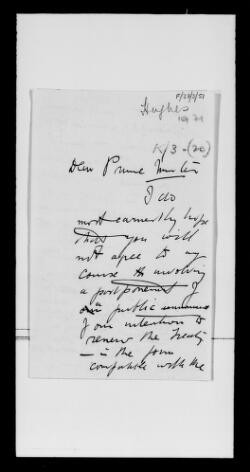 F/28/3/51
Hughes
K/3-(20)
Dear Prime Minister
I do
most earnestly hope
that you will
not agree to any
course involving
a postponement of
a public announcement
of our intention to
renew the Treaty
— in the form
compatible with the